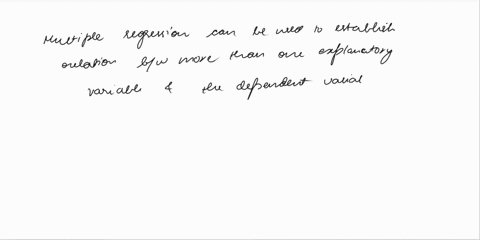 Multiple regression can be used to establish
relation b/w more than one explanatory
variable & the dependent variabl